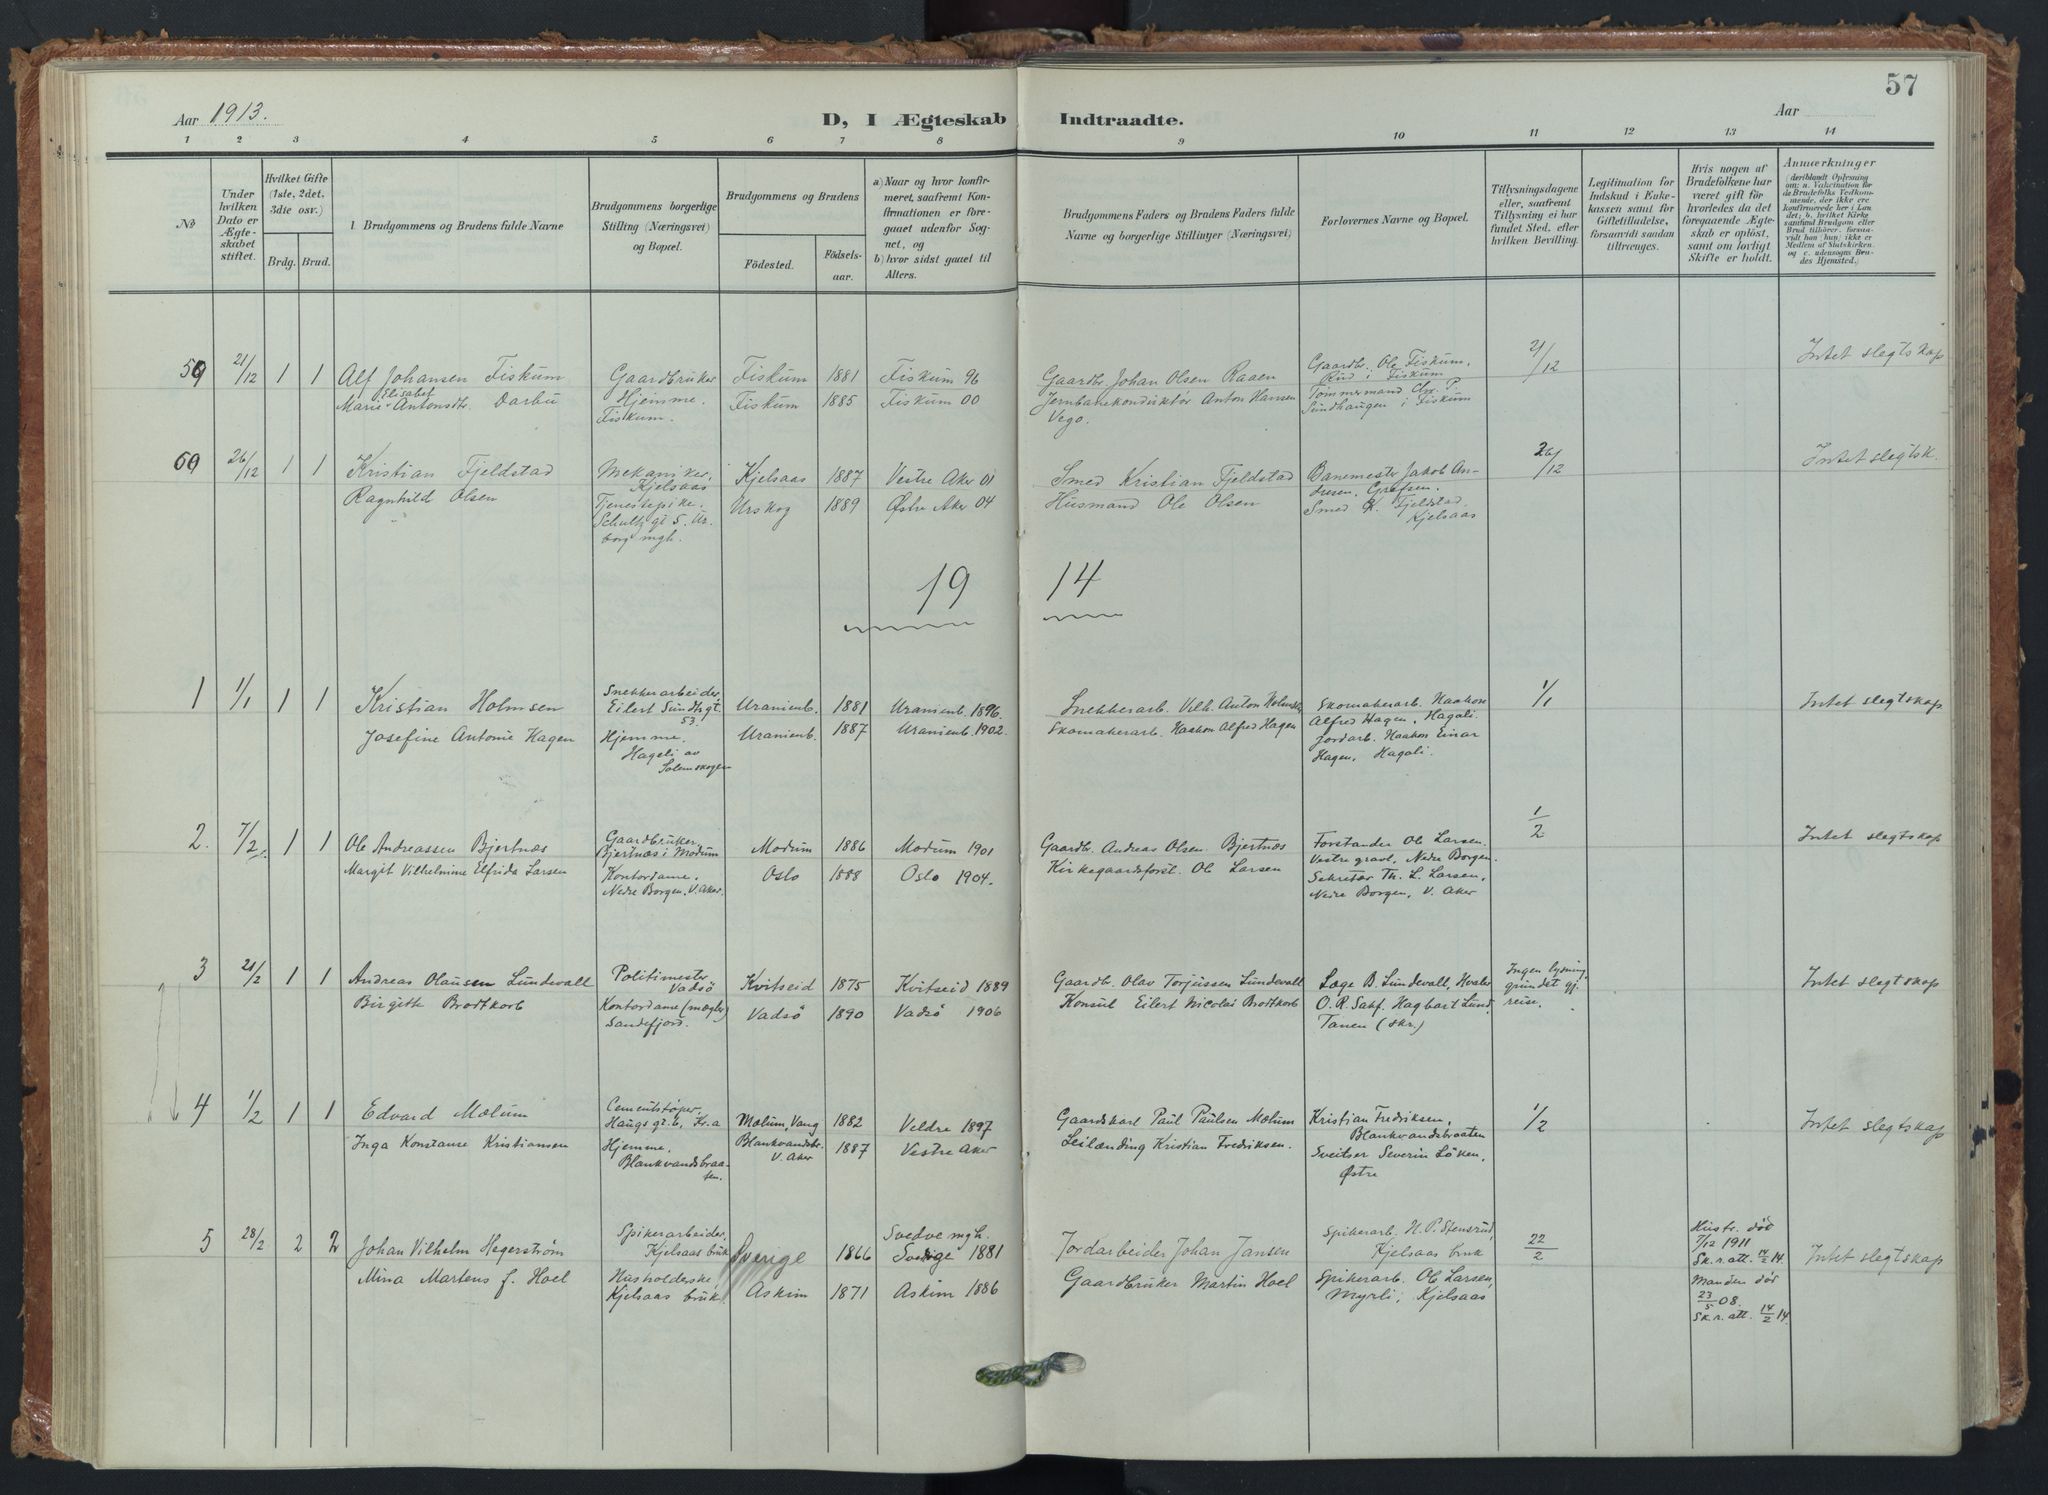 57
Aar 1913.
D, I Ægteskab Indtraadte.
Aar
1 2 3 4 5 6 7 8 9 10 11 12 13 14
No
Under hvilken Dato er Ægteskabet stiftet.
Hvilket Gifte (1ste, 2det, 3die osv.)
Brdg. Brud.
Brudgommens og Brudens fulde Navne
Brudgommens borgerlige Stilling (Næringsvei) og Bopæl.
Brudgommens og Brudens
Fødested. Fødsels-aar.
a) Naar og hvor konfirmeret, saafremt Konfirmationen er foregaaet udenfor Sognet, og
b) hvor sidst gaaet til Alters.
Brudgommens Faders og Brudens Faders fulde Navne og borgerlige Stillinger (Næringsvei)
Forlovernes Navne og Bopæl.
Tillysningsdagene eller, saafremt Tillysning ei har fundet Sted, efter hvilken Bevilling.
Legitimation for Indskud i Enkekassen samt for Giftetilladelse, forsaavidt saadan tiltrænges.
Hvis nogen af Brudefolkene har været gift før hvorledes da det foregaaende Ægteskab er opløst, samt om lovligt Skifte er holdt.
Anmærkninger (deriblandt Oplysning om: a. Vakcination for de Brudefolks Vedkommende, der ikke ere konfirmerede her i Landet; b. hvilket Kirkesamfund Brudgom eller Brud tilhører, forsaavidt han (hun) ikke er Medlem af Statskirken, og c. udensogns Brudes Hjemsted.)
59 21/12 1 1 Alf Johansen Fiskum Gaardbruker Fiskum 1881 Fiskum 96 Gaardbr. Johan Olsen Raaen Gaardbr. Ole Fiskum, Rud i Fiskum 21/12 Intet slegtskap
Marie Elisabet Antonsdtr. Darbu Hjemme. Fiskum. Fiskum 1885 Fiskum 00 Jernbanekonduktør Anton Hansen Vego. Tømmermand Chr. P. Sundhaugen i Fiskum
60 26/12 1 1 Kristian Fjeldstad Mekaniker, Kjelsaas Kjelsaas 1887 Vestre Aker 01 Smed Kristian Fjeldstad Banemester Jakob Andresen, Grefsen. 26/12 Intet slegtsk.
Ragnhild Olsen Tjenestepike. Schultz gt 5. Urskog 1889 Østre Aker 04 Husmand Ole Olsen Smed K. Fjeldstad, Kjelsaas
19 14
1 1/1 1 1 Kristian Holmsen Snekkerarbeider, Eilert Sundts gt. 53. Uranienb. 1881 Uranienb. 1896. Snekkerarb. Vilh. Anton Holmsen Skomakerarb. Haakon Alfred Hagen, Hagali. 1/1 Intet slegtskap
Josefine Antonie Hagen Hjemme. Hageli av Solemskogen Uranienb. 1887 Uranienb. 1902. Skomakerarb. Haakon Alfred Hagen Jordarb. Haakon Einar Hagen, Hagali.
2. 7/2 1 1 Ole Andreassen Bjertnæs Gaardbruker, Bjertnæs i Modum Modum 1886 Modum 1901 Gaardbr. Andreas Olsen Bjertnæs Forstander Ole Larsen. Vestre gravl. Nedre Borgen. 1/2 Intet slegtskap
Margit Vilhelmine Elfrida Larsen Kontordame. Nedre Borgen, V. Aker. Oslo 1888 Oslo 1904. Kirkegaardsforst. Ole Larsen Sekretær Th. L. Larsen, Nedre Borgen, V. Aker
3 21/2 1 1 Andreas Olausen Lundevall Politimester Vadsö Kvitseid 1875 Kvitseid 1889 Gaardb. Olav Torjussen Lundevall Læge B. Lundevall, Hvaler Ingen lysning, grundet gj. reise. Intet slegtskap
Birgithe Brodtkorb Kontordame (mægler) Sandefjord. Vadsö 1890 Vadsö 1906 Konsul Eilert Nicolai Brodtkorb O. R. Sakf. Hagbart Lund, Tanen (skr.)
4 1/2 1 1 Edvard Mælum Cementstöper. Haugs gt. 6, Kr.a Mælum, Vang 1882 Veldre 1897 Gaardskarl Paul Paulsen Mælum Kristian Fredriksen, Blankvandsbraaten 1/2 Intet slegtskap
Inga Konstanse Kristiansen Hjemme, Blankvandsbraaten. Blankvandsbr. V. Aker 1887 Vestre Aker Leilænding Kristian Fredriksen. Sveitser Severin Löken, Østre
5 28/2 2 2 Johan Vilhelm Hegerström Spikerarbeider, Kjelsaas bruk Sverige 1866 Svedve mgh. Sverige 1881 Jordarbeider Johan Jansen Spikerarb. H. P. Stensrud, Kjelsaas bruk 22/2 Hustr. död 7/12 1911 Sk. r. att. 14/2 14. Intet slegtskap
Mina Martens f. Hoel Husholderske, Kjelsaas bruk Askim 1871 Askim 1886 Gaardbruker Martin Hoel Spikerarb. Ole Larsen, Myrli, Kjelsaas Manden död 23/5 08. Sk. r. att. 14/2 14.